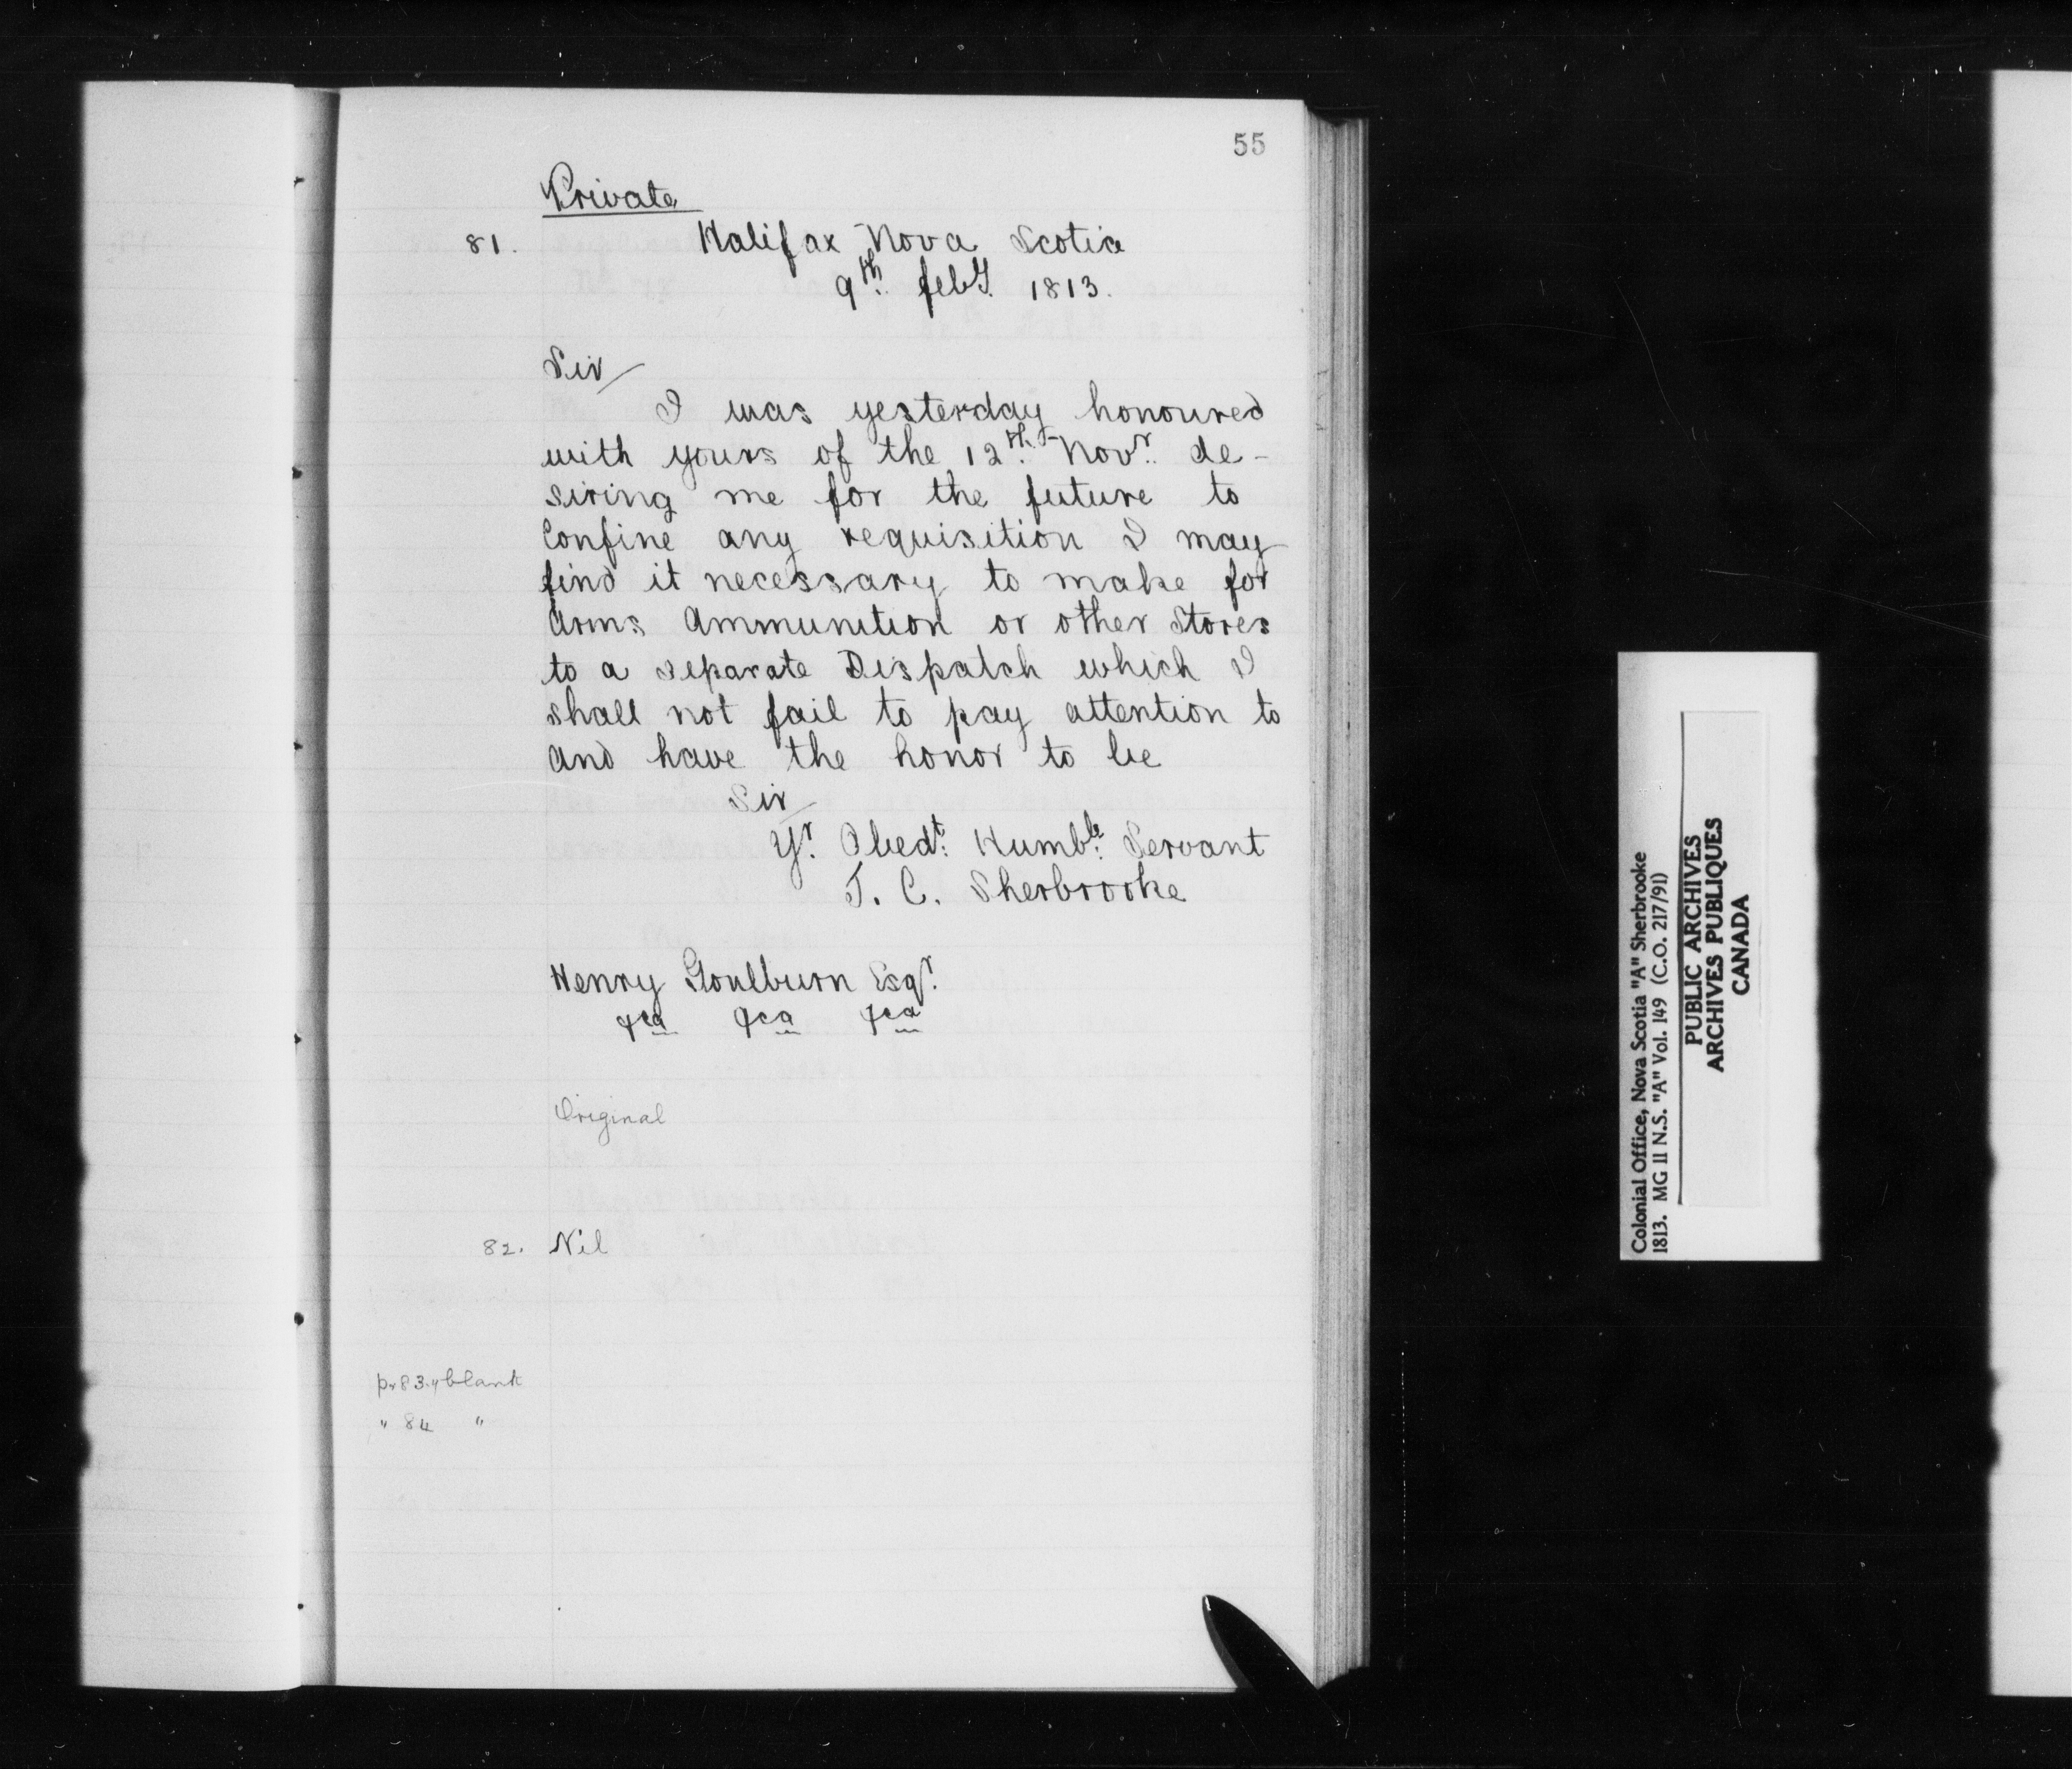 55
Private
81. Halifax Nova Scotia
9th. feby. 1813.
Sir/
I was yesterday honoured
with yours of the 12th. Novr. de-
siring me for the future to
Confine any requisition I may
find it necessary to make for
Arms Ammunition or other Stores
to a separate Dispatch which I
shall not fail to pay attention to
and have the honor to be
Sir/
Yr. Obedt: Humble: Servant
J. C. Sherbrooke
Henry Goulburn Esqr.
&ca &ca &ca
Original
82. Nil
blank
" 84 "
Colonial Office, Nova Scotia "A" Sherbrooke
1813. MG 11 N.S. "A" Vol. 149 (C.O. 217/91)
PUBLIC ARCHIVES
ARCHIVES PUBLIQUES
CANADA